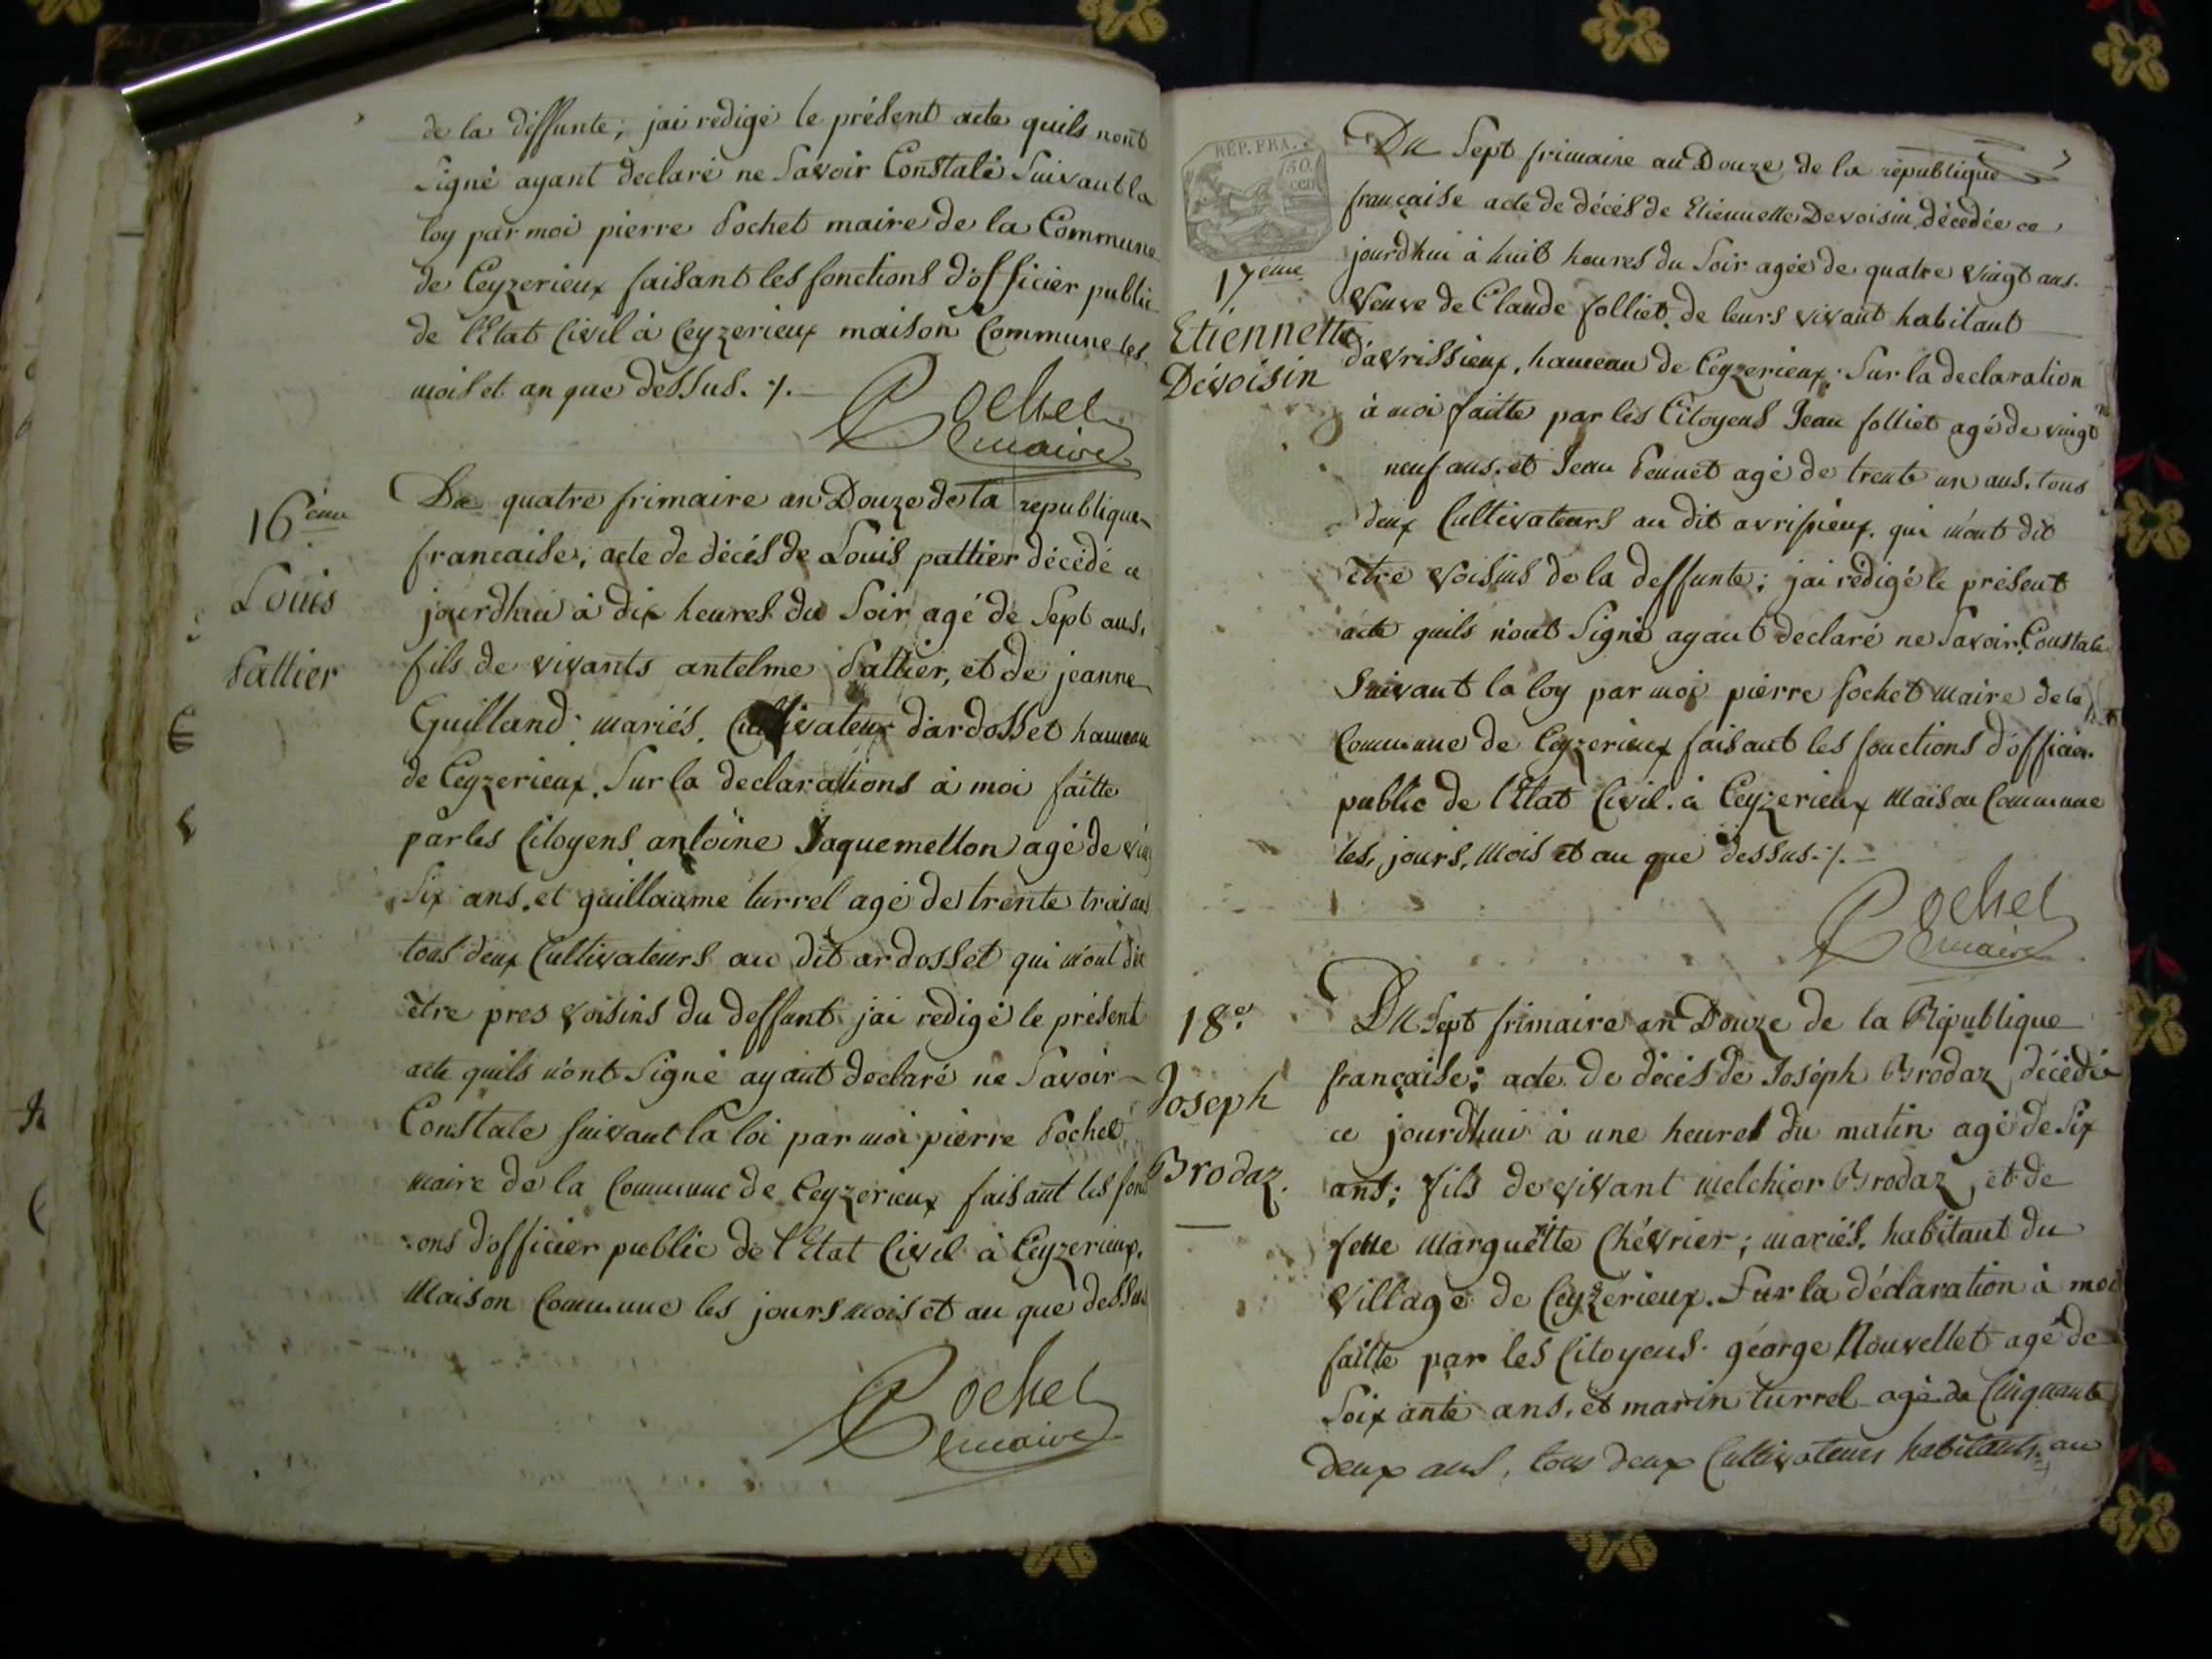 de la deffunte; jai redigé le présent acte quils nont
signé ayant declaré ne savoir Constalé suivant la
loy par moi pierre Pochet maire de la Commune
de Ceyzerieux faisant les fonctions d'officier public
de l'Etat Civil à Ceyzerieux maison Commune les
mois et an que dessus. ./.
Pochet
maire
16ème
Louis
Pattier
Du quatre frimaire an Douze de la republique
francaise, acte de décés de Louis pattier décédé ce
jourdhui à dix heures du soir agé de sept ans,
fils de vivants antelme Pattier, et de jeanne
Guilland mariés. Cultivateur d'ardosset hameau
de Ceyzerieux. Sur la declarations à moi faitte
par les Citoyens antoine Jaquemetton agé de
Six ans. et guillaume turrel agé de trente trois ans
tous deux Cultivateurs au dit ardosset qui m'ont dit
être pres voisins du deffunt jai redigé le présent
acte quils n'ont signé ayant declaré ne savoir
Constale suivant la loi par moi pierre Pochet
maire de la Commune de Ceyzerieux faisant les fonc
ons d'officier public de l'Etat Civil à Ceyzerieux.
Maison Commune les jours mois et an que dessus
Pochet
maire
REP. FRA.
50.
cen
17ème
Etiennette
Devoisin
Du Sept frimaire an Douze de la republique
française acte de décés de Etiennette Devoisin décedée ce
jourdhui à huit heures du soir agée de quatre vingt ans.
veuve de Claude folliet de leurs vivant habitant
d'avrissieux, hameau de Ceyzerieux. Sur la declaration
à moi faitte par les Citoyens Jean folliet agé de vingt
neuf ans. et Jean Pennet agé de trente un ans. tous
deux Cultivateurs au dit avrissieux. qui m'ont dit
être voisins de la deffunte; jai rédigé le présent
acte quils n'ont signé ayant declaré ne savoir. Constale
suivant la loy par moi pierre Pochet maire de la
Commune de Ceyzerieux faisant les fonctions d'officier
public de l'Etat Civil. à Ceyzerieux Maison Commune
les, jours, mois et an que dessus. ./.
Pochet
maire
18e.
Joseph
Brodaz.
Du Sept frimaire an Douze de la République
française; acte de décés de Joséph Brodaz, décédé
ce jourdhui à une heures du matin agé de six
ans; fils de vivant melchior Brodaz, et de
fette Marguëitte Chévrier; mariés, habitant du
village de Ceyzerieux. Sur la déclaration à moi
faitte par les Citoyens. géorge Nouvellet agé de
soixante ans, et marin turrel agé de Cinquante
deux ans, tous deux Cultivateurs habitants au